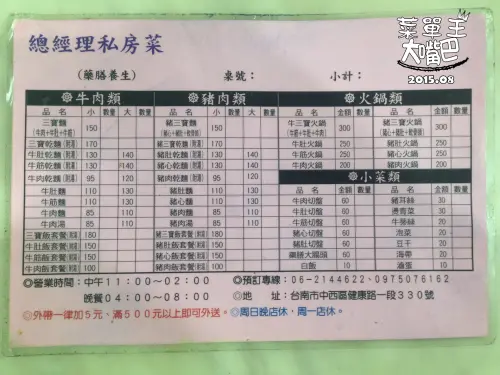 菜單王
大嘴巴
2015.08
總經理私房菜
(藥膳養生) 桌號： 小計：
牛肉類
品名 小 數量 大 數量
三寶麵 150
三寶乾麵(附湯) 150 170
牛肚乾麵(附湯) 130 140
牛筋乾麵(附湯) 130 140
牛肉乾麵(附湯) 95 120
牛肚麵 110 130
牛筋麵 110 130
牛肉麵 85 110
牛肉湯 85 110
三寶飯套餐(附湯) 180
牛肚飯套餐(附湯) 150
牛筋飯套餐(附湯) 150
牛肉飯套餐(附湯) 100
豬肉類
品名 小 數量 大 數量
豬三寶麵 150
豬三寶乾麵(附湯) 150 170
豬肚乾麵(附湯) 130 140
豬心乾麵(附湯) 130 140
豬肉乾麵(附湯) 95 120
豬肚麵 110 130
豬心麵 110 130
豬肉麵 85 110
豬肉湯 85 110
豬三寶飯套餐(附湯) 180
豬肚飯套餐(附湯) 150
豬心飯套餐(附湯) 150
豬肉飯套餐(附湯) 100
火鍋類
品名 金額 數量 品名 金額 數量
牛三寶火鍋 300 豬三寶火鍋 300
牛肚火鍋 250 豬肚火鍋 250
牛筋火鍋 250 豬心火鍋 250
牛肉火鍋 200 豬肉火鍋 200
小菜類
品名 金額 數量 品名 金額 數量
牛肉切盤 60 豬耳絲 30
牛肚切盤 60 燙青菜 30
牛筋切盤 60 牛蒡絲 20
豬心切盤 60 泡菜 20
豬肚切盤 60 豆干 20
藥膳大腸頭 60 海帶 20
白飯 10 滷蛋 10
◎營業時間：中午11:00～02:00 ◎預訂專線：06-2144622、0975076162
晚餐04:00～08:00 ◎地址：台南市中西區健康路一段330號
◎外帶一律加5元、滿500元以上即可外送。 ◎周日晚店休、周一店休。